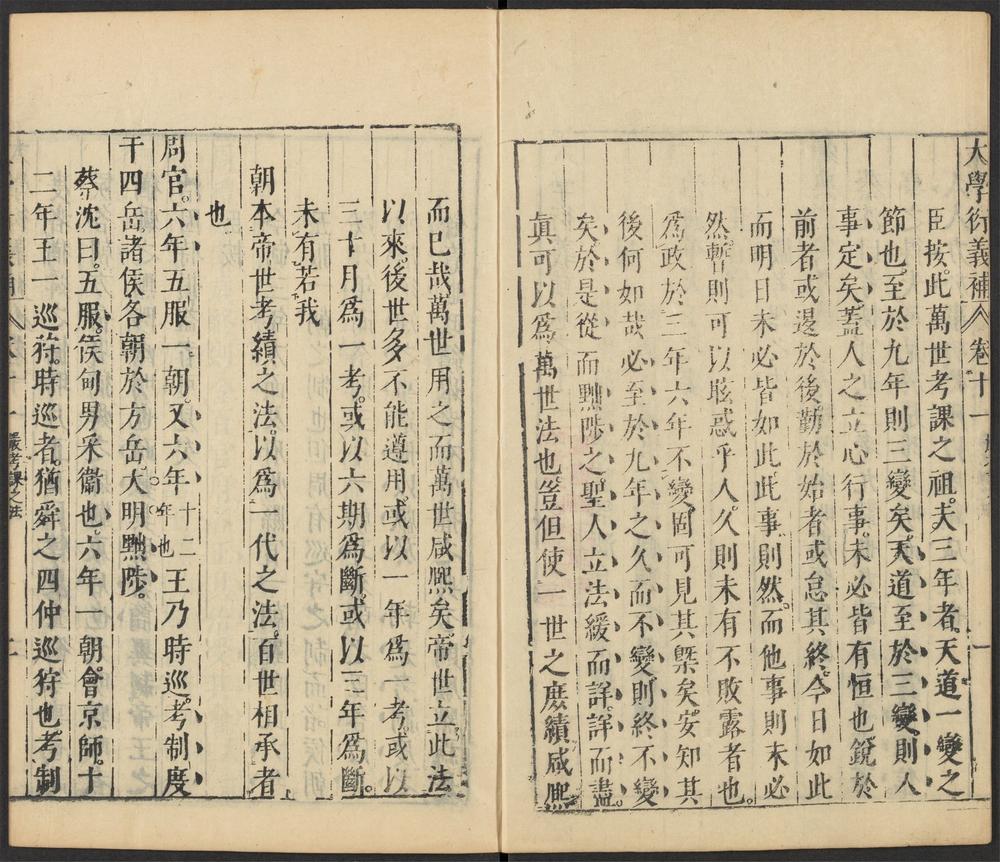 大學衍義補 卷十一
臣按。此萬世考課之祖。夫三年者。天道一變之
節也。至於九年則三變矣。天道至於三變。則人
事定矣。蓋人之立心行事。未必皆有恒也。銳於
前者或邊於後。勤於始者或怠其終。今日如此
而明日未必皆如此。此事則然。而他事則未必
然。暫則可以眩惑乎人。久則未有不敗露者也。
爲政於三年六年不變。固可見其槩矣。安知其
後何如哉。必至於九年之久而不變。則終不變
矣。於是從而黜陟之。聖人立法緩而詳。詳而盡。
眞可以爲萬世法也。豈但使一世之庶績咸熙
而已哉。萬世用之。而萬世咸熙矣。帝世立此法
以來。後世多不能遵用。或以一年爲一考。或以
三十月爲一考。或以六期爲斷。或以三年爲斷。
未有若我
朝本帝世考績之法。以爲一代之法。百世相承者
也
周官。六年五服一朝。又六年十二年也王乃時巡。考制度
于四岳。諸侯各朝於方岳。大明黜陟。
蔡沈曰。五服。侯甸男采衞也。六年一朝。會京師。十
二年王一巡狩。時巡者。猶舜之四仲巡狩也。考制
嚴考課之法